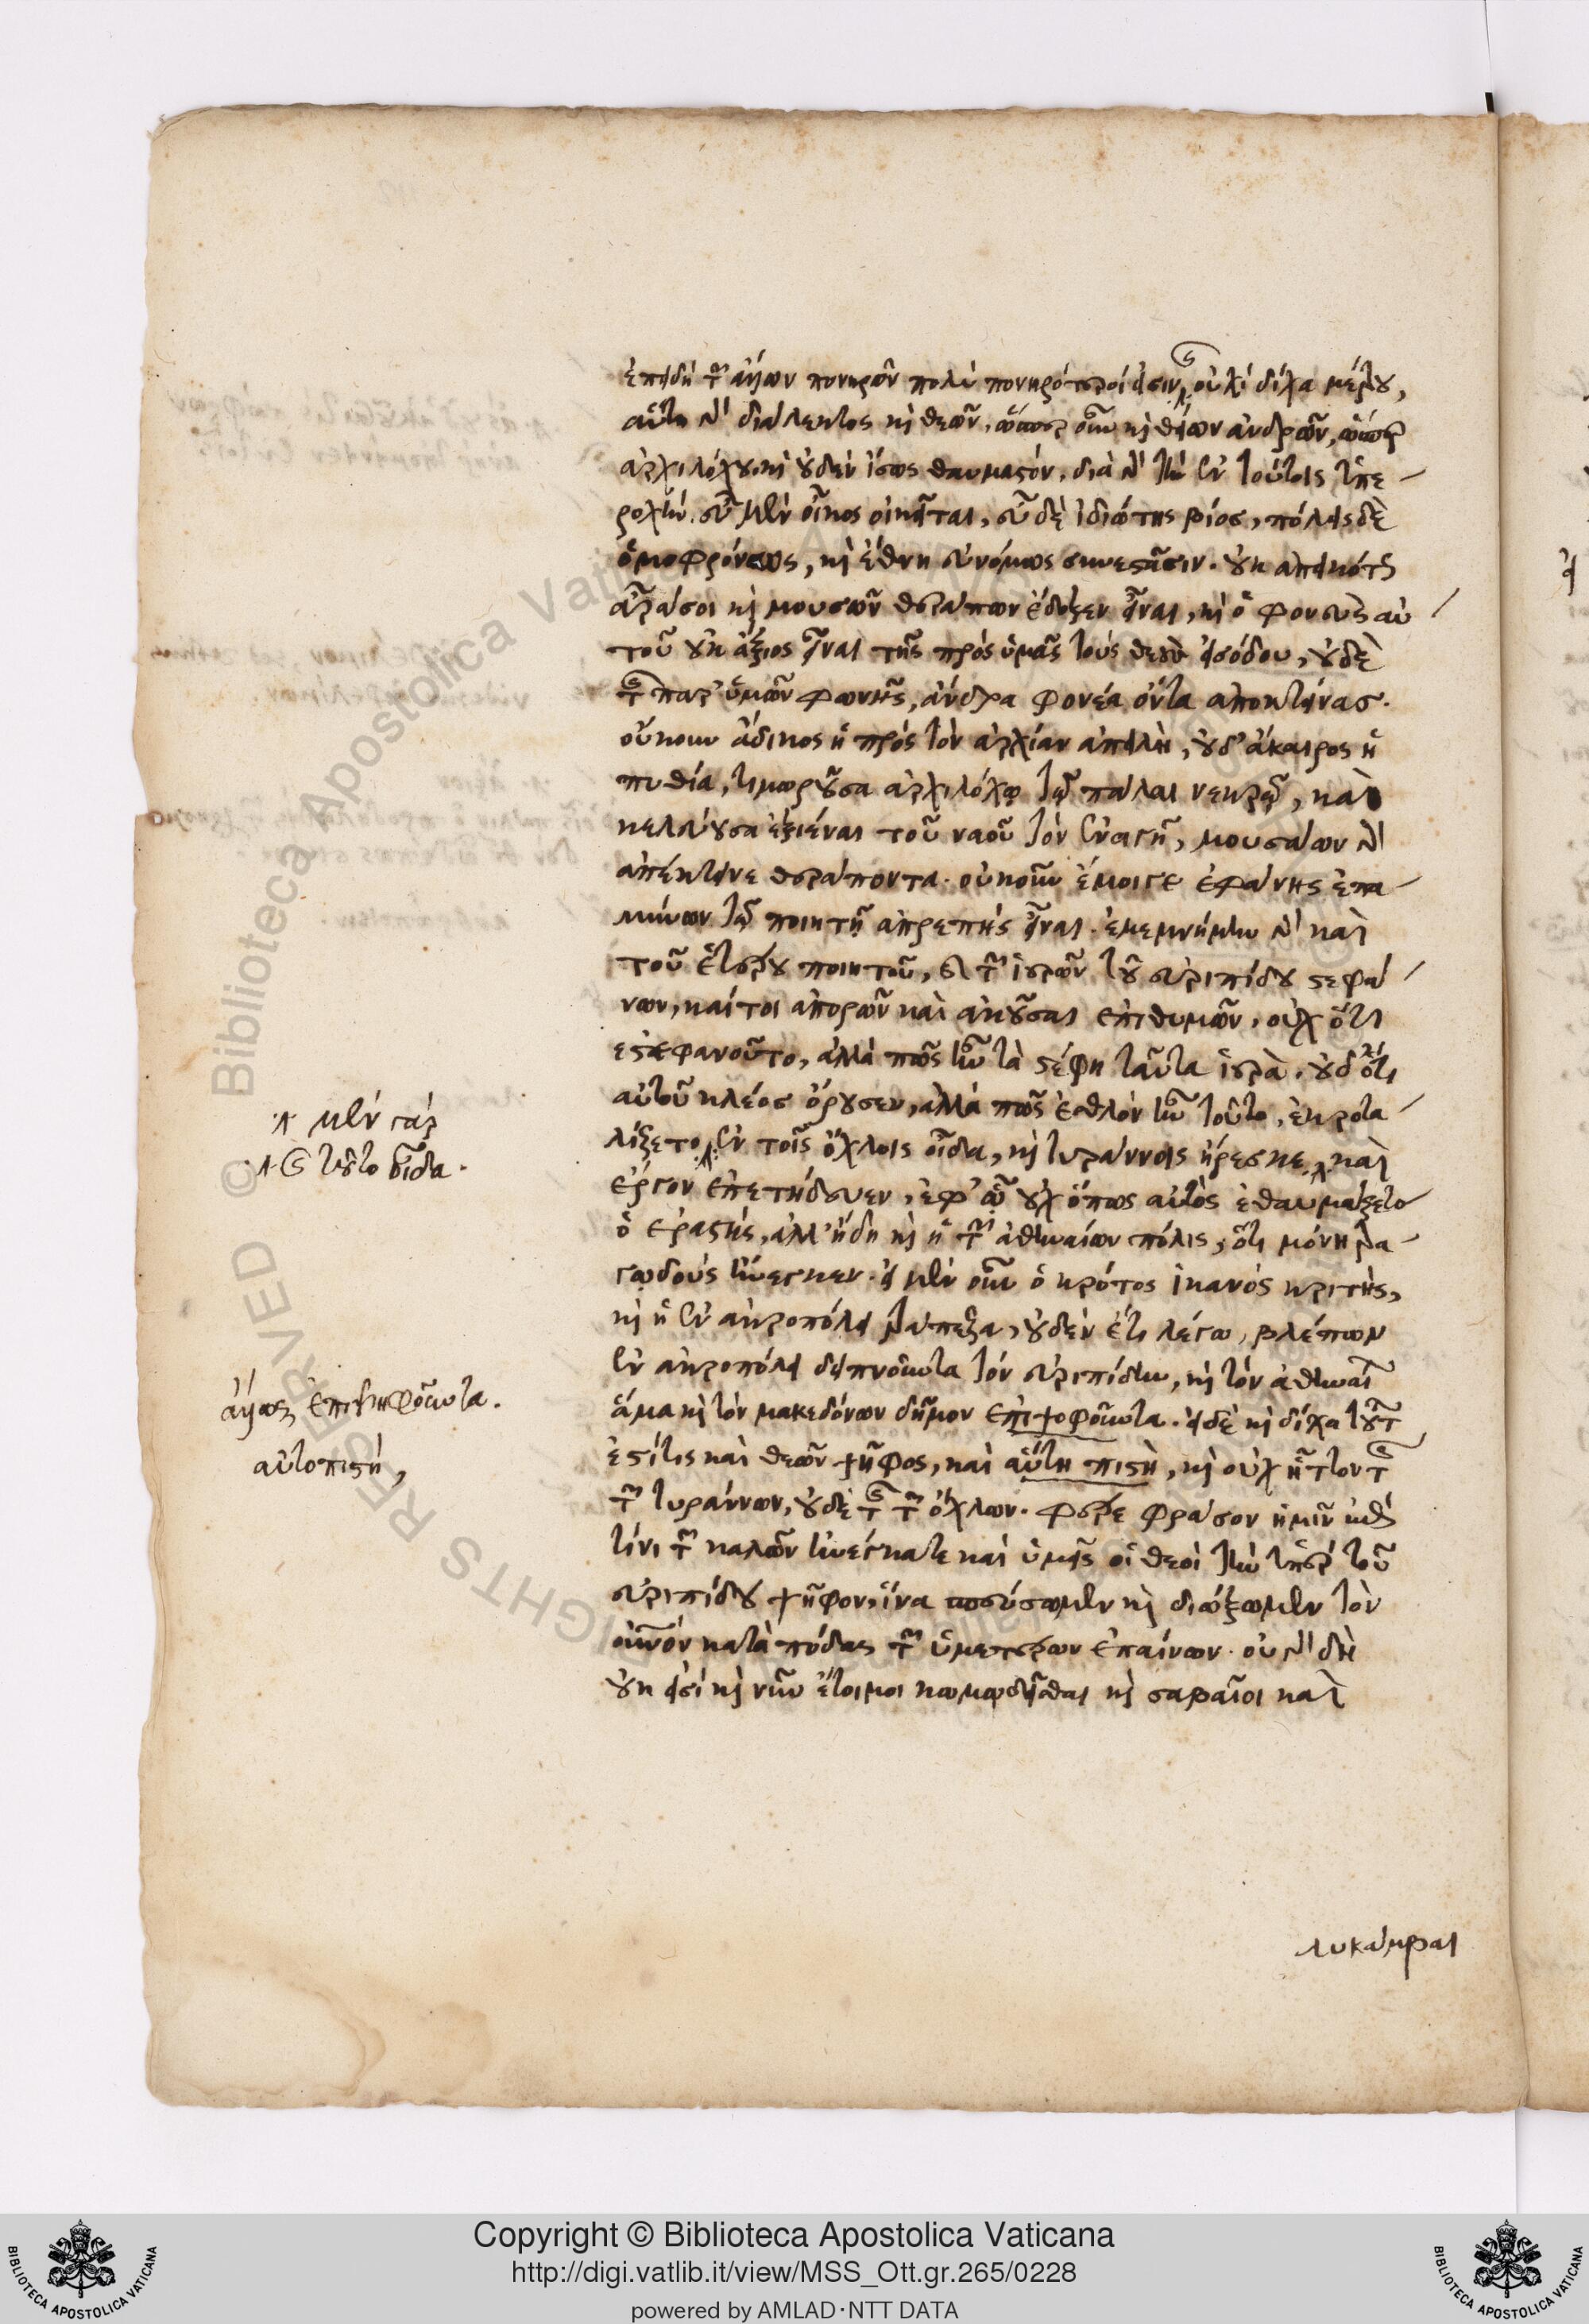 ἐπειδὴ τῶν ἄλλων πονηρῶν πολὺ πονηρότεροί εἰσιν, οὐχὶ δίχα μέτρου,
αὕτη γὰρ διάλεκτος καὶ θεῶν, ὥσπερ οὖν καὶ θείων ἀνδρῶν, ὥσπερ
ἀρχιλόχου. καὶ οὐδὲν ἴσως θαυμαστόν, διὰ γὰρ τὴν ἐν τούτοις ὑπε
ροχὴν. εὖ μὲν οἶκος οἰκεῖται, εὖ δὲ ἰδιώτης βίος, πόλεις δὲ
ὁμοφρόνως, καὶ ἔθνη εὐνόμως συνεστᾶσιν. οὐκ ἀπεικότως
ἄρα σοι καὶ μουσῶν θεράπων ἔδοξεν εἶναι, καὶ ὁ φονεὺς αὐ
τοῦ οὐκ ἄξιος εἶναι τῆς πρὸς ὑμᾶς τοὺς θεοὺς εἰσόδου, οὐδὲ
τῆς παρ' ὑμῶν φωνῆς, ἄνδρα φονέα ὄντα ἀποκτείνας.
οὔκουν ἄδικος ἡ πρὸς τὸν ἀρχίαν ἀπειλὴ, οὐδ' ἄκαιρος ἡ
πυθία, τιμωροῦσα ἀρχιλόχῳ τῷ πάλαι νεκρῷ, καὶ
κελεύουσα ἐξιέναι τοῦ ναοῦ τὸν ἐναγῆ, μουσάων γὰρ
ἀπέκτεινε θεράποντα. οὐκοῦν ἔμοιγε ἐφάνης ἐπα
μύνων τῷ ποιητῇ ἀπρεπὴς εἶναι. ἐμεμνήμην γὰρ καὶ
τοῦ ἑτέρου ποιητοῦ, καὶ τῶν ἱερῶν τοῦ εὐριπίδου στεφά
νων, καίτοι ἀπορῶν καὶ ἀκοῦσαι ἐπιθυμῶν, οὐχ ὅτι
ἐστεφανοῦτο, ἀλλὰ πῶς ἦν τὰ στέφη ταῦτα ἱερὰ. οὐδ' ὅτι
αὐτοῦ κλέος ὄρουσεν, ἀλλὰ πῶς ἐσθλὸν ἦν τοῦτο. ἐκροτα
λίζετο ἐν τοῖς ὄχλοις οἶδα, καὶ τυράννοις ἤρεσκε, καὶ
ἔργον ἐπετήδευεν, ἐφ' ᾧ οὐχ ὅπως αὐτὸς ἐθαυμάζετο
ὁ ἐραστὴς, ἀλλ' ἤδη καὶ ἡ τῶν ἀθηναίων πόλις, ὅτι μόνη τρα
γῳδοὺς ἤνεγκεν. εἰ μὲν οὖν ὁ κρότος ἱκανὸς κριτὴς,
καὶ ἡ ἐν ἀκροπόλει τράπεζα, οὐδὲν ἔτι λέγω, βλέπων
ἐν ἀκροπόλει δειπνοῦντα τὸν εὐριπίδην, καὶ τὸν ἀθηναίων
ἅμα καὶ τὸν μακεδόνων δῆμον ἐπιψοφοῦντα. εἰ δὲ καὶ δίχα τούτων
ἐστί τις καὶ θεῶν ψῆφος, καὶ αὕτη πιστὴ, καὶ οὐχ ἧττον τῆς
τῶν τυράννων, οὐδὲ τῆς τῶν ὄχλων. φέρε φράσον ἡμῖν ἐπὶ
τίνι τῶν καλῶν ἠνέγκατε καὶ ὑμεῖς οἱ θεοὶ τὴν ὑπὲρ τοῦ
εὐριπίδου ψῆφον, ἵνα σπεύσωμεν καὶ διώξωμεν τὸν
οὐρανὸν κατὰ πόδας τῶν ὑμετέρων ἐπαίνων. οὐ γὰρ δὴ
οὐκ εἰσὶ καὶ νῦν ἕτοιμοι κωμῳδεῖσθαι καὶ σαβαῖοι καὶ
λυκάμβαι
λ μὲν γάρ
λ τοῦτο οἶδα.
ἄλλως ἐπιψηφοῦντα.
αὐτοπιστή,
Copyright © Biblioteca Apostolica Vaticana
http://digi.vatlib.it/view/MSS_Ott.gr.265/0228
powered by AMLAD·NTT DATA
BIBLIOTECA APOSTOLICA VATICANA
BIBLIOTECA APOSTOLICA VATICANA